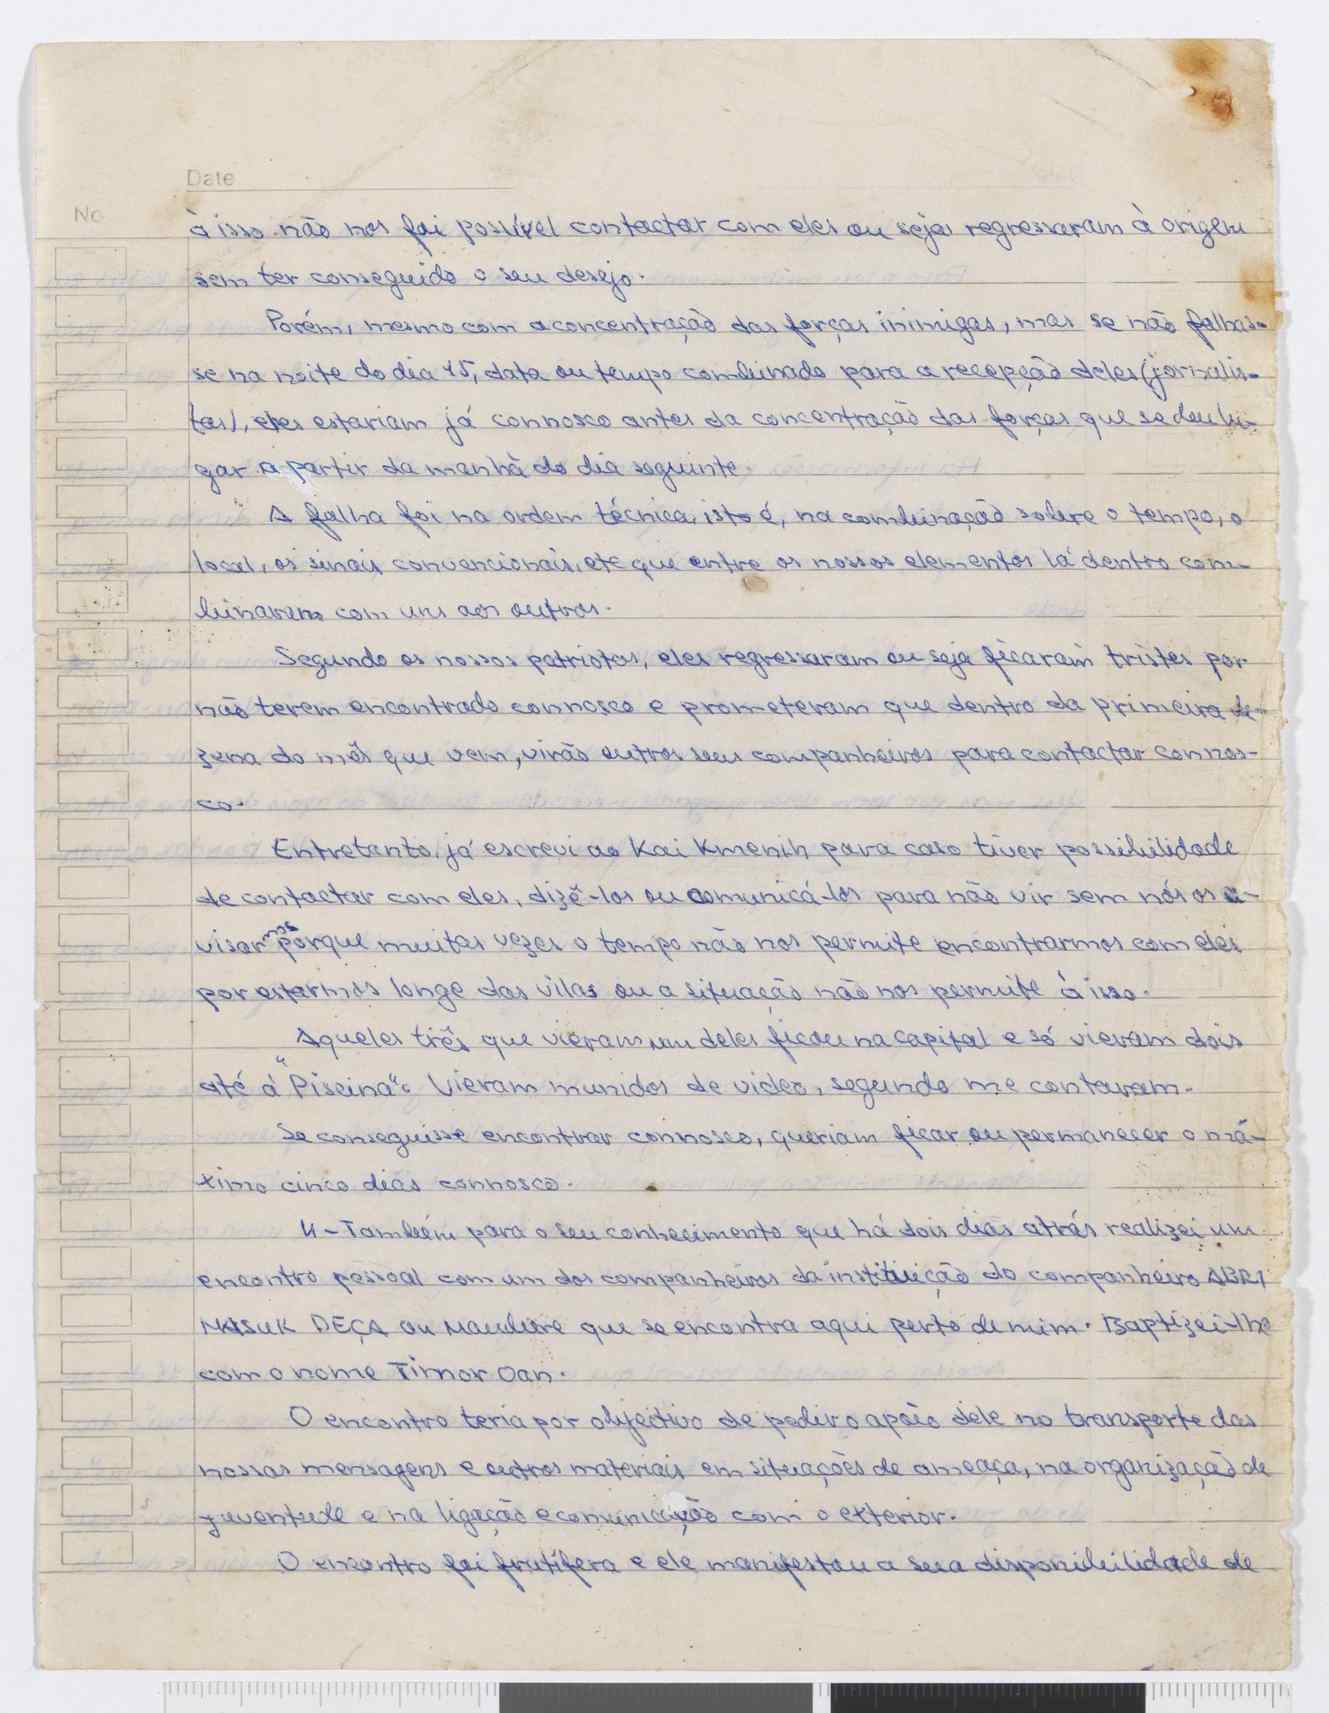 Date
No
à isso não nos foi possível contactar com eles ou seja regressaram à origem
sem ter conseguido o seu desejo.
Porém, mesmo com a concentração das forças inimigas, mas se não falhas-
se na noite do dia 15, data ou tempo combinado para a recepção deles (jornalis-
tas), eles estariam já connosco antes da concentração das forças que se deu lu-
gar a partir da manhã do dia seguinte.
A falha foi na ordem técnica, isto é, na combinação sobre o tempo, o
local, os sinais convencionais, etc que entre os nossos elementos lá dentro com-
binaram com uns aos outros.
Segundo os nossos patriotas, eles regressaram ou seja ficaram tristes por
não terem encontrado connosco e prometeram que dentro da primeira de-
zena do mês que vem, virão outros seus companheiros para contactar connos-
co.
Entretanto, já escrevi ao Kai Kmenih para caso tiver possibilidade
de contactar com eles, dizê-los ou comunicá-los para não vir sem nós os a-
visarmos porque muitas vezes o tempo não nos permite encontrarmos com eles
por estarmos longe das vilas ou a situação não nos permite à isso.
Aqueles três que vieram um deles ficou na capital e só vieram dois
até á "Piscina". Vieram munidos de video, segundo me contaram.
Se conseguisse encontrar connosco, queriam ficar ou permanecer o má-
ximo cinco dias connosco.
4 - Também para o seu conhecimento que há dois dias atrás realizei um
encontro pessoal com um dos companheiros da instituição do companheiro ABRI
NASUK DEÇA ou Maubere que se encontra aqui perto de mim. Baptizei-lhe
com o nome Timor Oan.
O encontro teria por objectivo de pedir o apoio dele no transporte das
nossas mensagens e outros materiais em situações de ameaça, na organização de
juventude e na ligação e comunicação com o exterior.
O encontro foi frutífera e ele manifestou a sua disponibilidade de